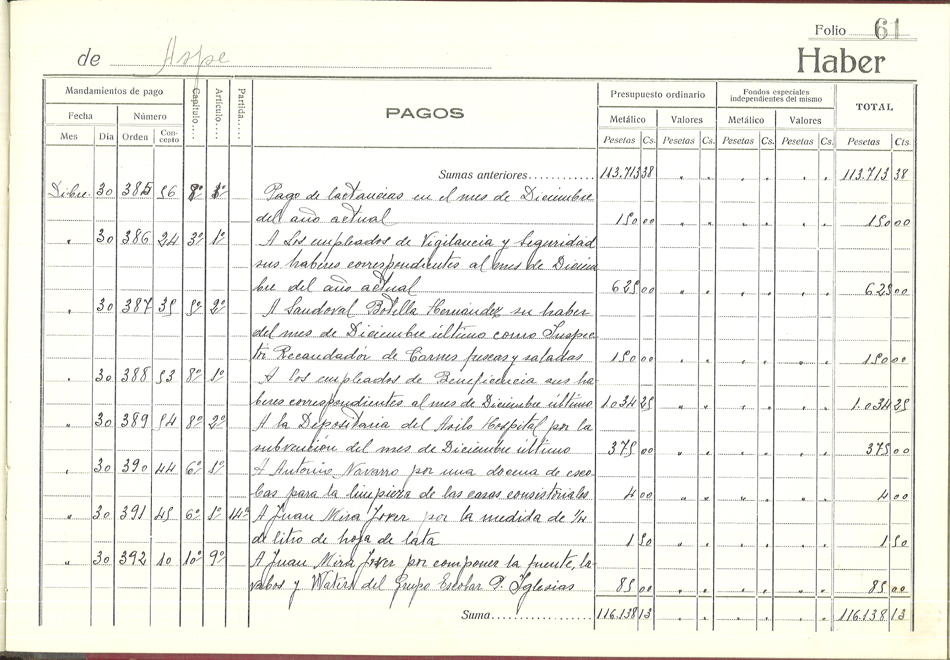 Folio 61
de Aspe Haber
Mandamientos de pago Capítulo.... Artículo.... Partida.... PAGOS Presupuesto ordinario Fondos especiales independientes del mismo TOTAL
Fecha Número Metálico Valores Metálico Valores
Mes Día Orden Concepto Pesetas Cs. Pesetas Cs. Pesetas Cs. Pesetas Cs. Pesetas Cts.
Sumas anteriores............ 113.713 38 113.713 38
Dibre. 30 385 56 8º 1º Pago de lactancias en el mes de Diciembre
del año actual 150 00 150 00
" 30 386 24 3º 1º A los empleados de Vigilancia y Seguridad
sus haberes correspondientes al mes de Diciem
bre del año actual 625 00 625 00
" 30 387 35 5º 2º A Sandoval Botella Hernández su haber
del mes de Diciembre último como Inspec
tor Recaudador de Carnes frescas y saladas 150 00 150 00
" 30 388 53 8º 1º A los empleados de Beneficencia sus ha
beres correspondientes al mes de Diciembre último 1.034 25 1.034 25
" 30 389 54 8º 2º A la Depositaria del Asilo Hospital por la
subvención del mes de Diciembre último 375 00 375 00
" 30 390 44 6º 1º A Antonio Navarro por una docena de esco
bas para la limpieza de las casas consistoriales 4 00 4 00
" 30 391 45 6º 1º 14ª A Juan Mira Jover por la medida de
de litro de hoja de lata 1 50 1 50
" 30 392 10 10º 9º A Juan Mira Jover por componer la fuente, la
vabos y Waters del Grupo Escolar P. Iglesias 85 00 85 00
Suma.................... 116.138 13 116.138 13